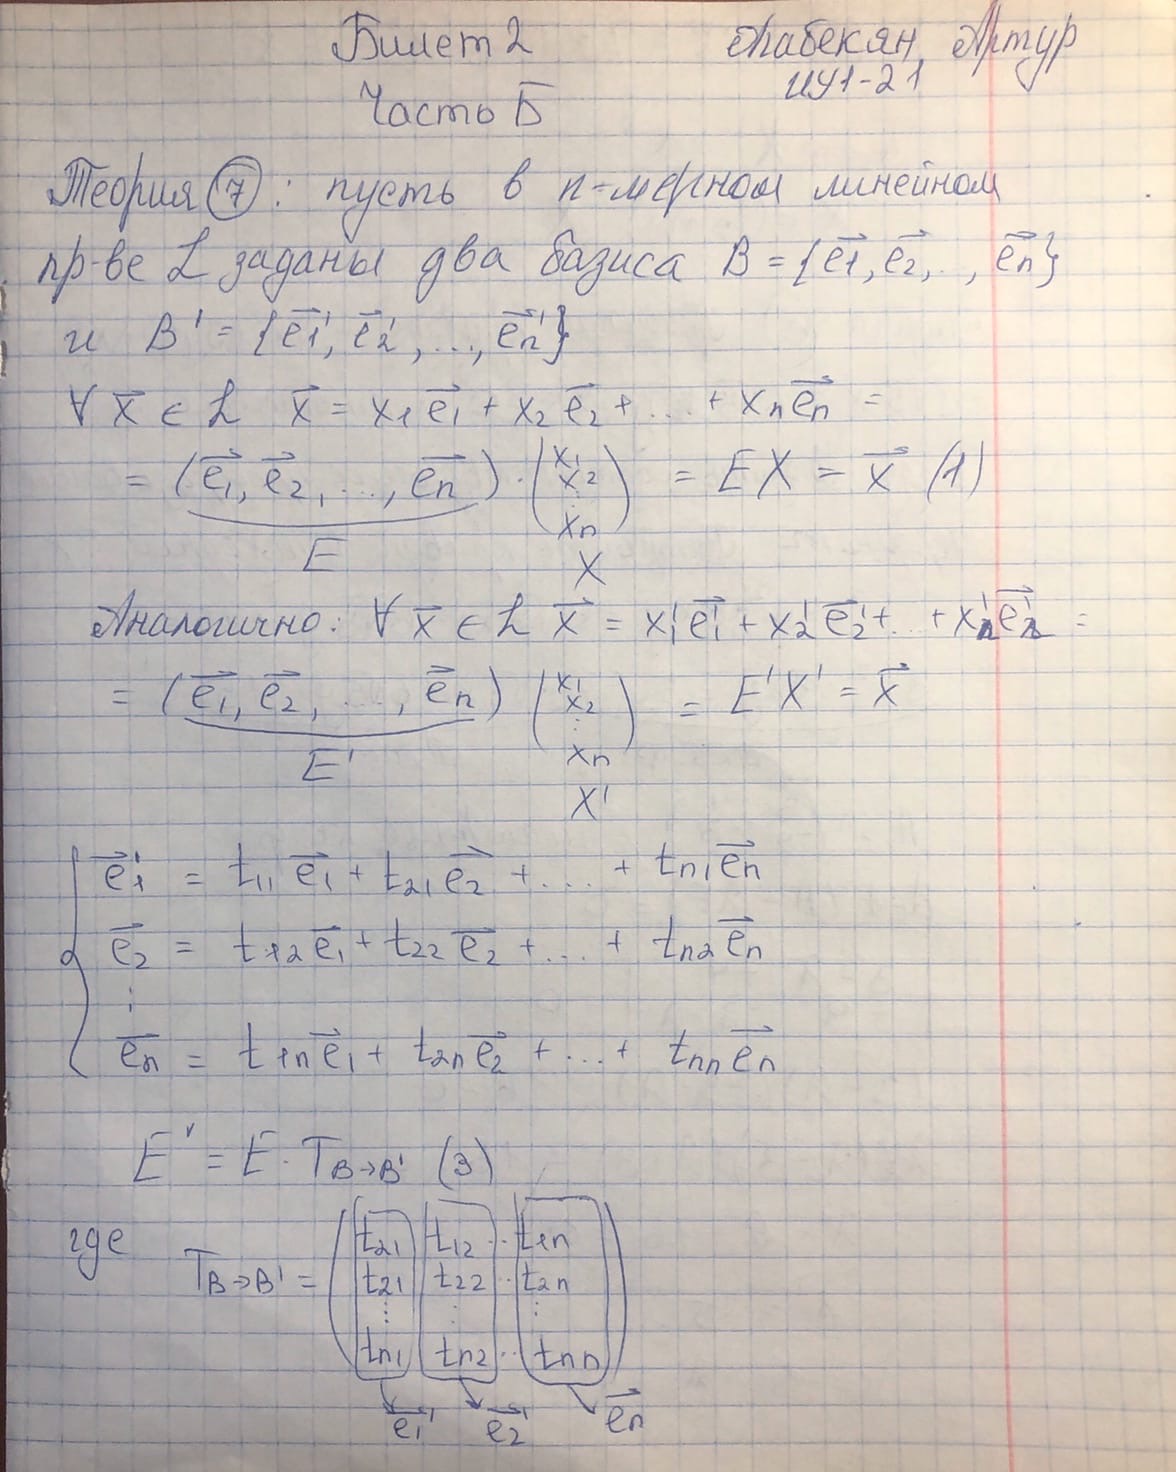 Билет 2
Жабекян Артур
ИУ1-21
Часть Б
Теория ⑦: пусть в n-мерном линейном
пр-ве L заданы два базиса B = {e⃗1, e⃗2, .., e⃗n}
и B' = {e⃗1', e⃗2', ..., e⃗n'}
∀ x⃗ ∈ L x⃗ = x1e⃗1 + x2e⃗2 + ... + xne⃗n =
= (e⃗1, e⃗2, ..., e⃗n) · (x1 x2 ⋮ xn) = EX = x⃗ (1)
E X
Аналогично: ∀ x⃗ ∈ L x⃗ = x1'e⃗1' + x2'e⃗2' + .. + xn'e⃗n' =
= (e⃗1, e⃗2, ..., e⃗n) (x1 x2 ⋮ xn) = E'X' = x⃗
E' X'
e⃗1' = t11e⃗1 + t21e⃗2 + ... + tn1e⃗n
e⃗2 = t12e⃗1 + t22e⃗2 + ... + tn2e⃗n
⋮
e⃗n = t1ne⃗1 + t2ne⃗2 + ... + tnne⃗n
E' = E · TB→B' (3)
где TB→B' =
t21 t12 .. t1n
t21 t22 .. t2n
⋮ ⋮ ⋮
tn1 tn2 .. tnn
e⃗1' e⃗2' e⃗n